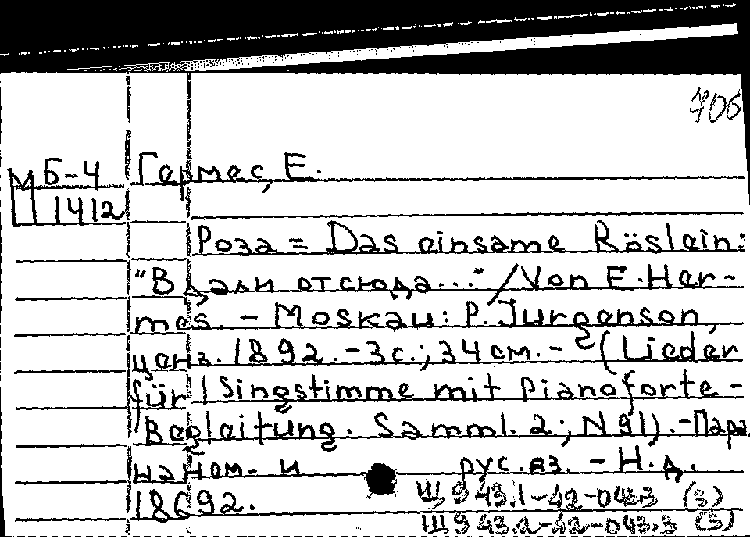 706
М Б-4 Гермес, Е.
Ш 1412
Роза = Das einsame Röslein:
"Вдали отсюда..." / Von E. Her-
mes. - Moskau: P. Jurgenson,
ценз. 1892. - 3 с.; 34 см. - (Lieder
für 1 Singstimme mit Pianoforte-
Begleitung. Samml. 2; N 91). - Пара
на нем. и рус. яз. - Н.д.
18692.
Щ 943.1-42-043.3 (3)
Щ 943.2-42-043.3 (3)